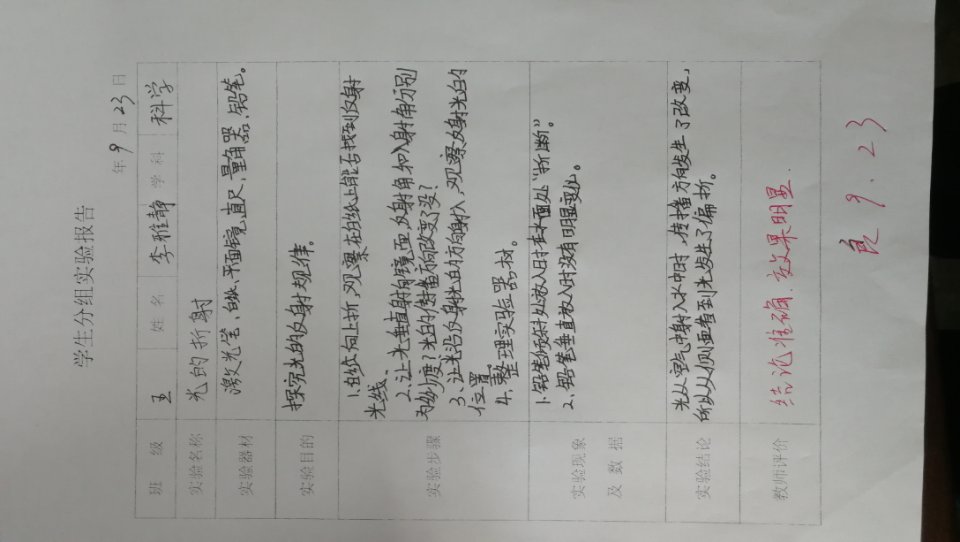 学生分组实验报告
年9月23日
班 级 五 姓 名 李雅静 学 科 科学
实验名称 光的折射
实验器材 激光笔、白纸、平面镜、直尺、量角器、铅笔。
实验目的 探究光的反射规律。
实验步骤
1.白纸向上折,观察在白纸上能否找到反射
光线、
2、让光垂直射向镜面,反射角和入射角分别
为多少度?光的传播方向改变了没?
3、让光沿反射光的方向射入,观察反射光的
位置
4.整理实验器材。
实验现象
及 数 据
1.铅笔倾斜放入时在水面处“折断”。
2、铅笔垂直放入时没有明显变化。
实验结论
光从空气中射入水中时,传播方向发生了改变,
所以从侧面看到光发生了偏折。
教师评价 结论准确.效果明显.
良 9.23